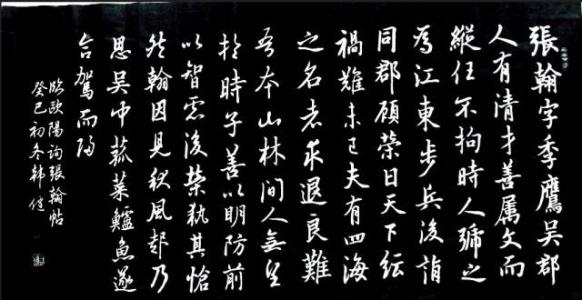 張翰字季鷹吳郡
人有清才善属文而
縱任不拘時人號之
為江東步兵後謂
同郡顧榮曰天下紜
禍難未已夫有四海
之名者求退良難
吾本山林間人無望
於時子善以明防前
以智慮後榮執其愴
然翰因見秋風起乃
思吳中菰菜鱸魚遂
命駕而歸
臨歐陽詢張翰帖
癸巳初冬韓健